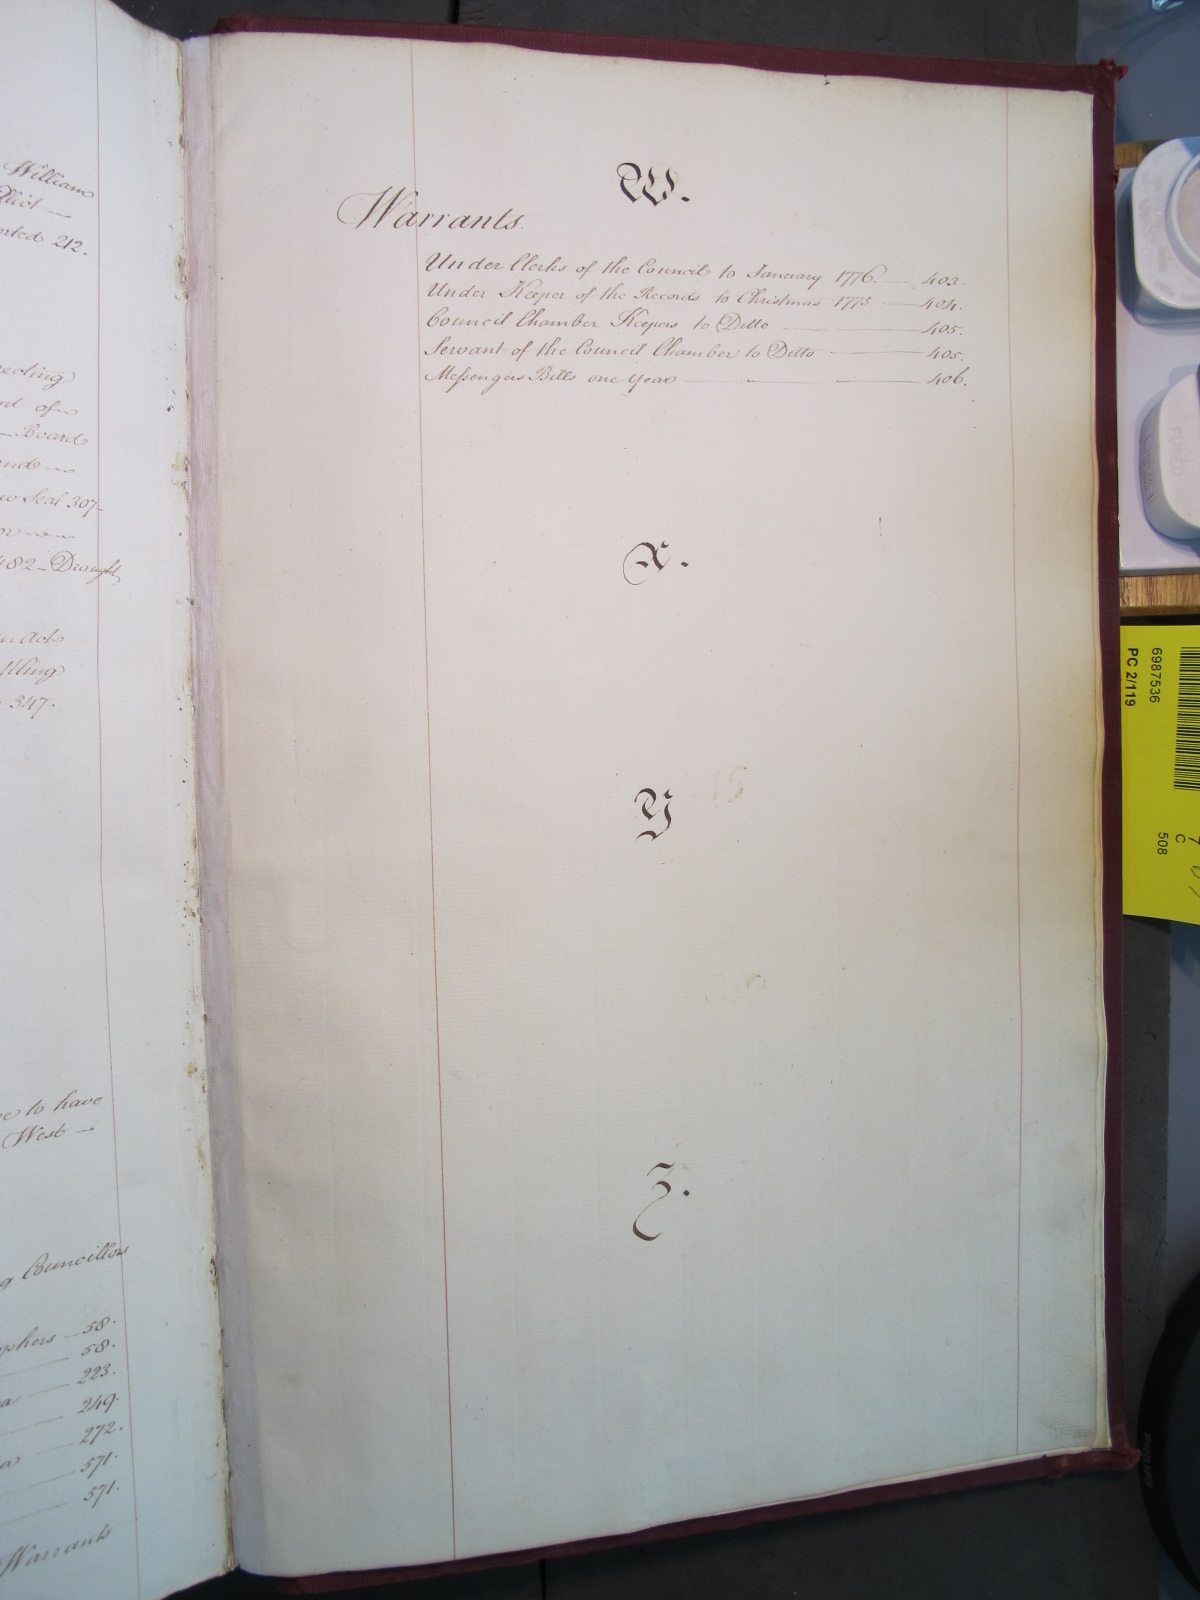 William
Elliot
212.
ecting
nt of
Board
end
Seal 307
482 - Draught
an Act
347.
to have
West
Councillors
58.
58.
223.
249.
272.
571.
571.
Warrants
W.
Warrants.
Under Clerks of the Council to January 1776. 403.
Under Keeper of the Records to Christmas 1775 404.
Council Chamber Keepers to Ditto 405.
Servant of the Council Chamber to Ditto 405.
Messengers Bills one Year 406.
X.
Y
Z.
6987536
PC 2/119
C
508